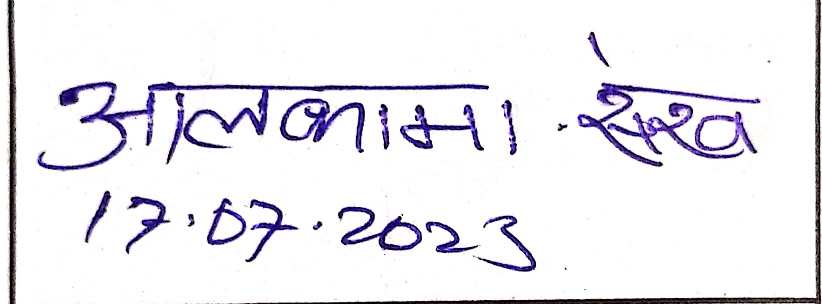 आलकामा सेख
17.07.2023